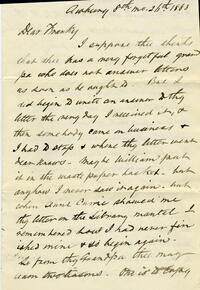 8th mo. 26th 1883
Dear Franky
I suppose thee thinks
that thee has a very forgetful grand
pa who does not answer letters
as soon as he ought to But I
did begin to write an answer to thy
letter the very day I received it, &
then somebody came on business &
I had to stop & where thy letter went
dear knows. Maybe William put
it in the waste paper basket. but
anyhow I never saw it again. but
when Aunt Carrie showed me
thy letter on the Library mantel I
remembered how I had never fin
ished mine & so begin again.
from thy Grandpa thee may
learn two lessons. One is to